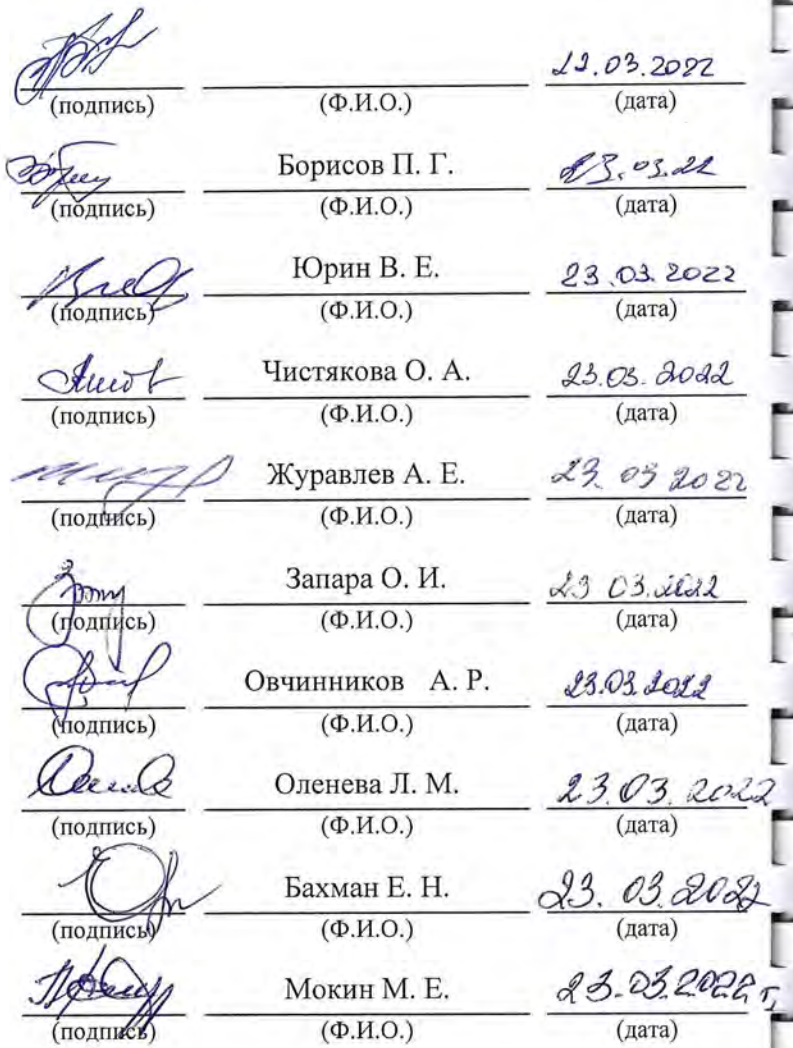 23.03.2022
(подпись) (Ф.И.О.) (дата)
Борисов П. Г. 23.03.22
(подпись) (Ф.И.О.) (дата)
Юрин В. Е. 23.03.2022
(подпись) (Ф.И.О.) (дата)
Чистякова О. А. 23.03.2022
(подпись) (Ф.И.О.) (дата)
Журавлев А. Е. 23.03 2022
(подпись) (Ф.И.О.) (дата)
Запара О. И. 23 03.2022
(подпись) (Ф.И.О.) (дата)
Овчинников А. Р. 23.03.2022
(подпись) (Ф.И.О.) (дата)
Оленева Л. М. 23.03.2022
(подпись) (Ф.И.О.) (дата)
Бахман Е. Н. 23.03.2022
(подпись) (Ф.И.О.) (дата)
Мокин М. Е. 23.03.2022 г.
(подпись) (Ф.И.О.) (дата)